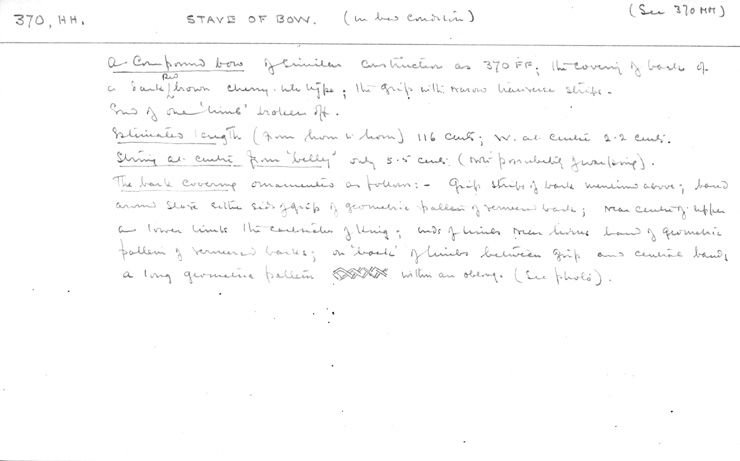 370, HH. STAVE OF BOW. (in bad condition) (See 370 MM)
A Compound bow of similar construction as 370 FF; the covering of bark of
a dark Red/brown cherry-like type; the grip with narrow transverse strips.
End of one 'limb' broken off.
Estimated length (from horn to horn) 116 cents; W. at centre 2.2 cents.
String at centre from 'belly' only 5.5 cents. (note possibility of warping).
The bark covering ornamented as follows:- Grip strips of bark mentioned above; band
around stave either side of grip of geometric pattern of veneered bark; near centre of upper
and lower limbs the of; ends of limbs near horns band of geometric
pattern of veneered barks; on 'back' of limbs between grip and central bands
a long geometric pattern within an oblong. (See photo).